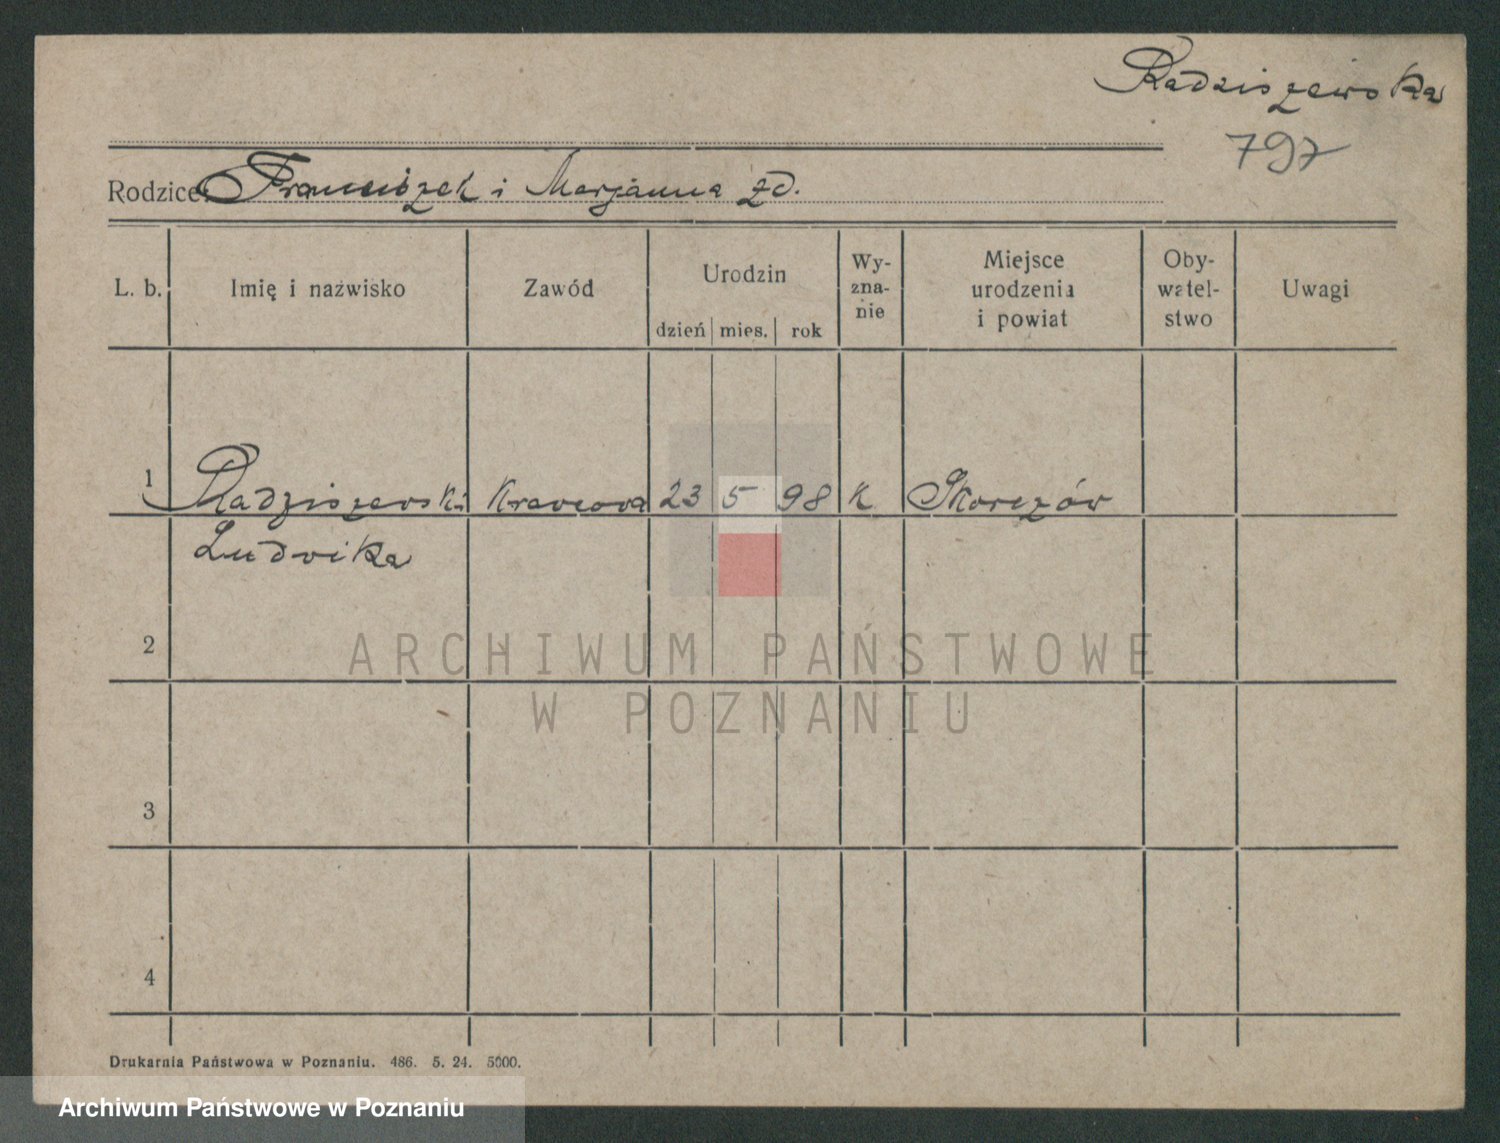 Radziszewska
797
Rodzice: Franciszek i Marjanna zd.
L. b.
Imię i nazwisko
Zawód
Urodzin
dzień mies. rok
Wy-
zna-
nie
Miejsce
urodzenia
i powiat
Oby-
watel-
stwo
Uwagi
1 Radziszewski Krawcowa 23 5 98 K Skorczów
Ludwika
2
ARCHIWUM PAŃSTWOWE
W POZNANIU
3
4
Drukarnia Państwowa w Poznaniu. 486. 5. 24. 5000.
Archiwum Państwowe w Poznaniu